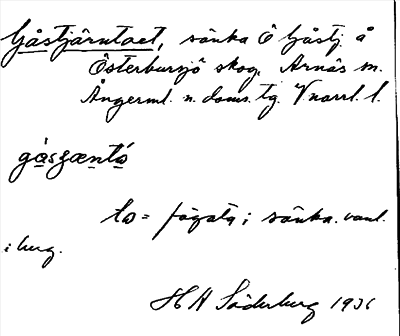 Gåstjärntået, sänka Ö Gåstj. å
Österbursjö skog, Arnäs sn.
Ångerml. n. doms. tg. Vnorrl. l.
gåsɕæntó
to = fågata; sänka. vanl.
i berg.
H H Söderberg 1936